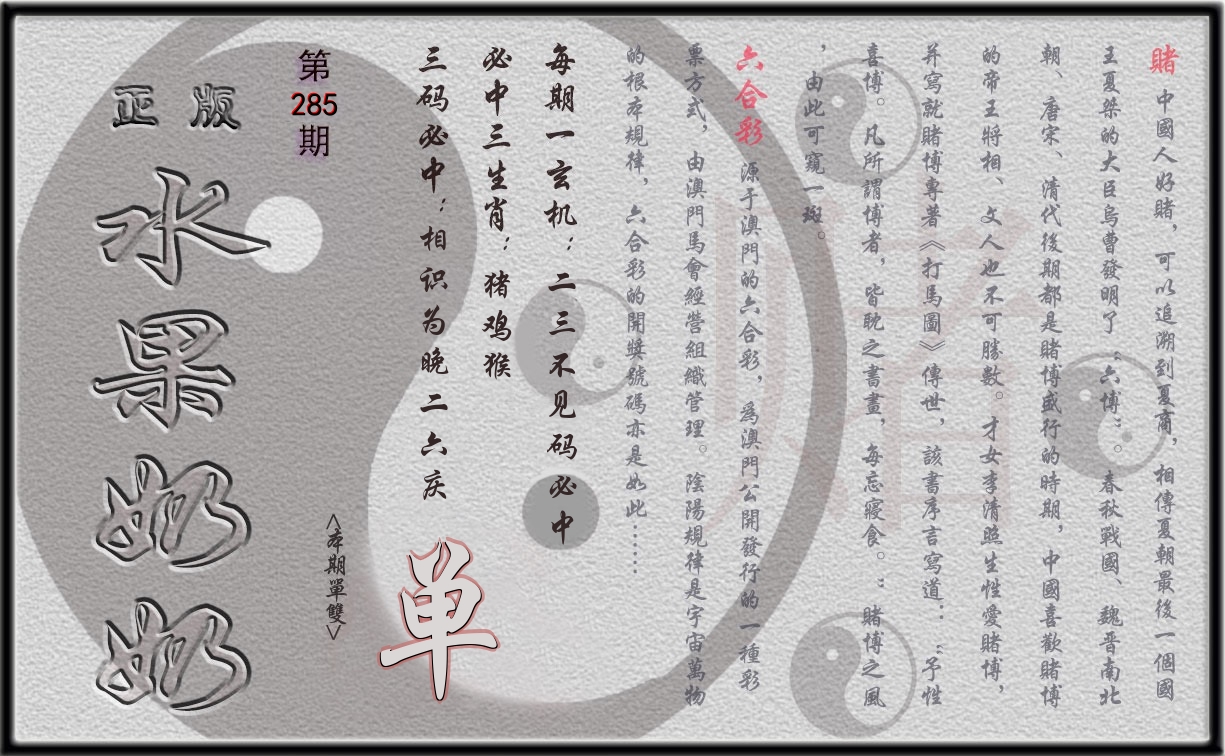 賭 中國人好賭，可以追溯到夏商，相傳夏朝最後一個國
王夏桀的大臣烏曹發明了“六博”。春秋戰國、魏晋南北
朝、唐宋、清代後期都是賭博盛行的時期，中國喜歡賭博
的帝王將相、文人也不可勝數。才女李清照生性愛賭博，
并寫就賭博專著《打馬圖》傳世，該書序言寫道：“予性
喜博。凡所謂博者，皆耽之書畫，每忘寢食。”賭博之風
，由此可窺一斑。
六合彩 源于澳門的六合彩，為澳門公開發行的一種彩
票方式，由澳門馬會經營組織管理。陰陽規律是宇宙萬物
的根本規律，六合彩的開獎號碼亦是如此……
每期一玄机：二三不见码必中
必中三生肖：猪鸡猴
三码必中：相识为晚二六庆
第285期
<本期單雙>
单
正版
水果奶奶
賭